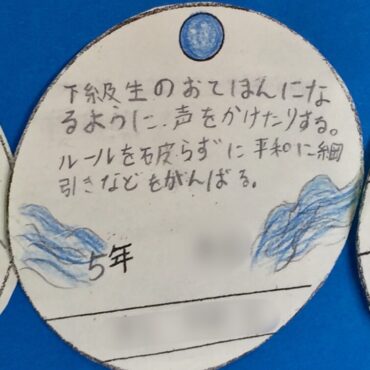 下級生のおてほんにな
るように、声をかけたりする。
ルールを破らずに平和に綱
引きなどをがんばる。
5年